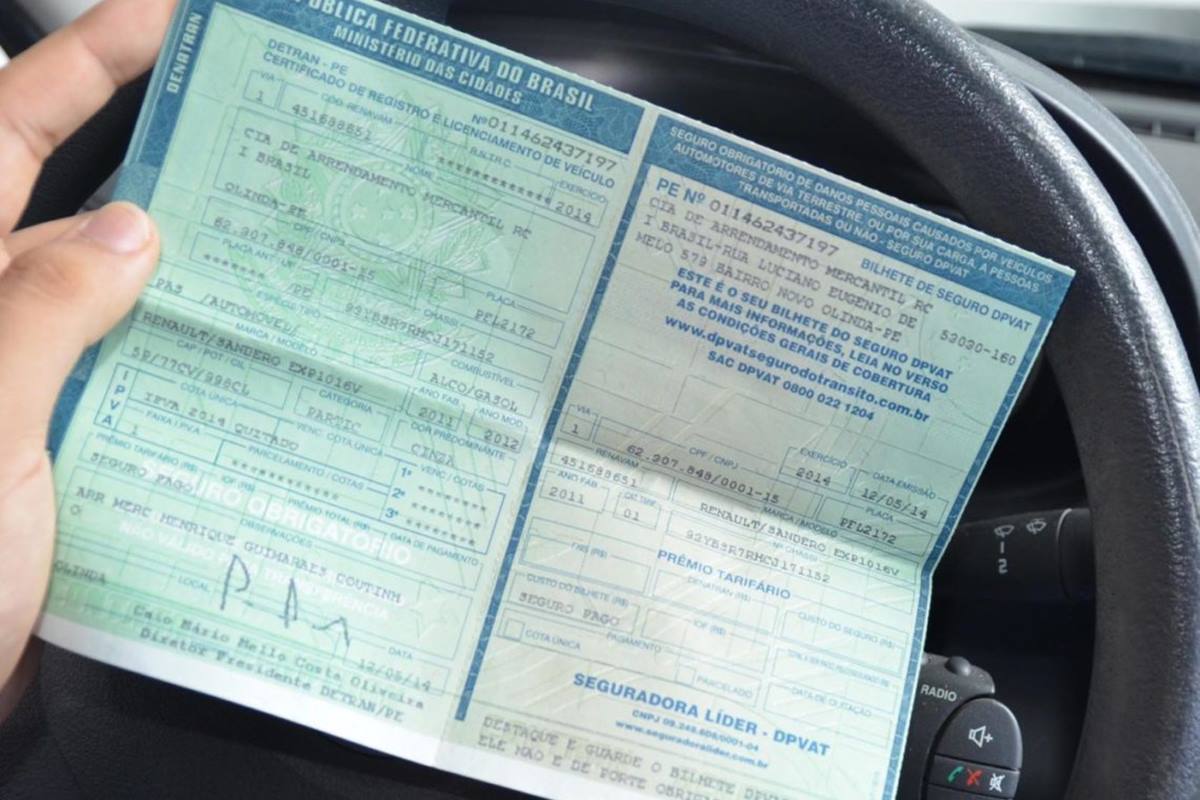 DENATRAN
PÚBLICA FEDERATIVA DO BRASIL
MINISTÉRIO DAS CIDADES
DETRAN - PE Nº 011462437197
CERTIFICADO DE REGISTRO E LICENCIAMENTO DE VEÍCULO
VIA CÓD. RENAVAM R.N.T.R.C EXERCÍCIO
1 451688651 *********** 2014
NOME
CIA DE ARRENDAMENTO MERCANTIL RC
I BRASIL
OLINDA-PE
CPF / CNPJ PLACA
62.907.848/0001-15 PFL2172
PLACA ANT / UF CHASSI
******* /PE 93YBSR7RHCJ171152
ESPÉCIE TIPO COMBUSTÍVEL
PAS /AUTOMOVEL ALCO/GASOL
MARCA / MODELO ANO FAB. ANO MOD.
RENAULT/SANDERO EXP1016V 2011 2012
CAP / POT / CIL CATEGORIA COR PREDOMINANTE
5P/77CV/998CL PARTIC CINZA
IPVA
COTA ÚNICA VENC. COTA ÚNICA VENC / COTAS
IPVA 2014 QUITADO 1º ******
FAIXA I.P.V.A. PARCELAMENTO / COTAS 2º ******
1 ********** 3º ******
PRÊMIO TARIFÁRIO (R$) IOF (R$) PRÊMIO TOTAL (R$) DATA DE PAGAMENTO
SEGURO PAGO
SEGURO OBRIGATÓRIO
OBSERVAÇÕES
ARR MERC HENRIQUE GUIMARAES COUTINH
O
LOCAL DATA
OLINDA 12/05/14
Caio Mário Mello Costa Oliveira
Diretor Presidente DETRAN/PE
SEGURO OBRIGATÓRIO DE DANOS PESSOAIS CAUSADOS POR VEÍCULOS
AUTOMOTORES DE VIA TERRESTRE, OU POR SUA CARGA, A PESSOAS
TRANSPORTADAS OU NÃO - SEGURO DPVAT
PE Nº 011462437197 BILHETE DE SEGURO DPVAT
CIA DE ARRENDAMENTO MERCANTIL RC
I BRASIL-RUA LUCIANO EUGENIO DE
MELO 579 BAIRRO NOVO OLINDA-PE 53030-160
ESTE É O SEU BILHETE DO SEGURO DPVAT
PARA MAIS INFORMAÇÕES, LEIA NO VERSO
AS CONDIÇÕES GERAIS DE COBERTURA
www.dpvatsegurodotransito.com.br
SAC DPVAT 0800 022 1204
VIA CPF / CNPJ EXERCÍCIO DATA EMISSÃO
1 62.907.848/0001-15 2014 12/05/14
RENAVAM MARCA / MODELO PLACA
451688651 RENAULT/SANDERO EXP1016V PFL2172
ANO FAB. CAT. TARIF. Nº CHASSI
2011 01 93YBSR7RHCJ171152
PRÊMIO TARIFÁRIO
FNS (R$) DENATRAN (R$) CUSTO DO SEGURO (R$)
CUSTO DO BILHETE (R$) IOF (R$)
SEGURO PAGO
PAGAMENTO
COTA ÚNICA PARCELADO DATA DE QUITAÇÃO
SEGURADORA LÍDER - DPVAT
CNPJ 09.248.608/0001-04
www.seguradoralider.com.br
DESTAQUE E GUARDE O BILHETE DPVAT
ELE NAO E DE PORTE
RADIO